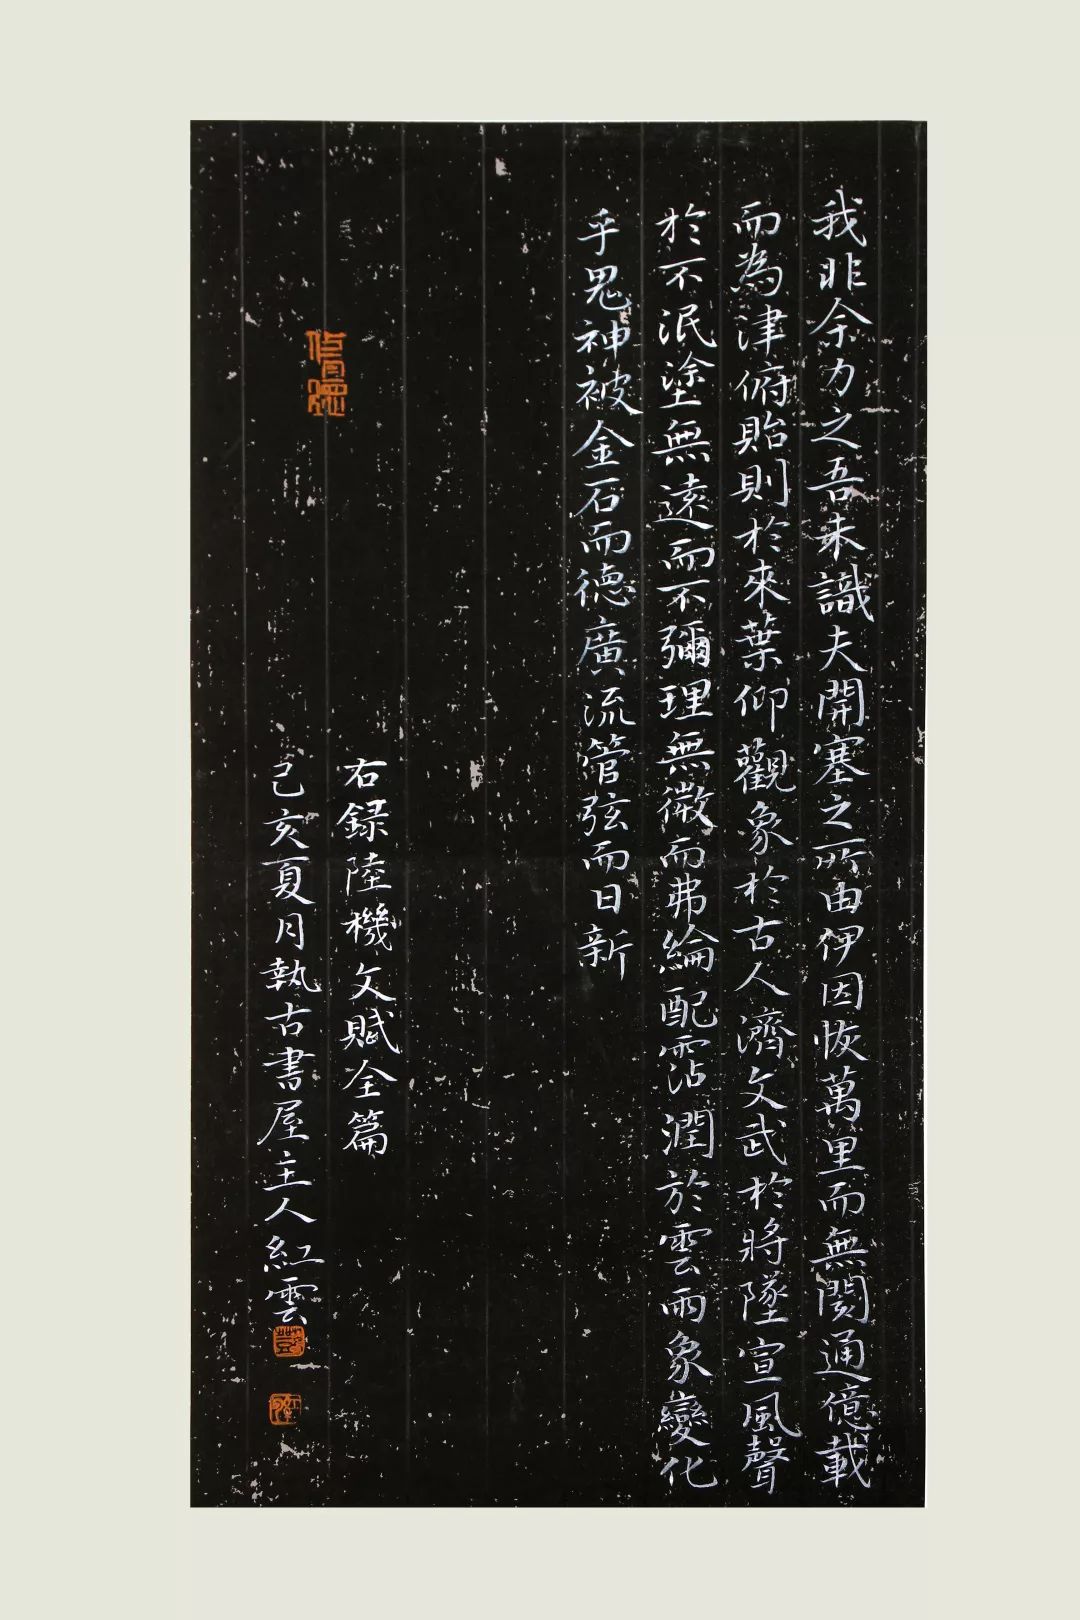 我非余力之吾未識夫開塞之所由伊因恢萬里而無閡通億載
而為津俯貽則於來葉仰觀象於古人濟文武於將墜宣風聲
於不泯塗無遠而不彌理無微而弗綸配霑潤於雲雨象變化
乎鬼神被金石而德廣流管弦而日新
右録陸機文賦全篇
己亥夏月執古書屋主人紅雲